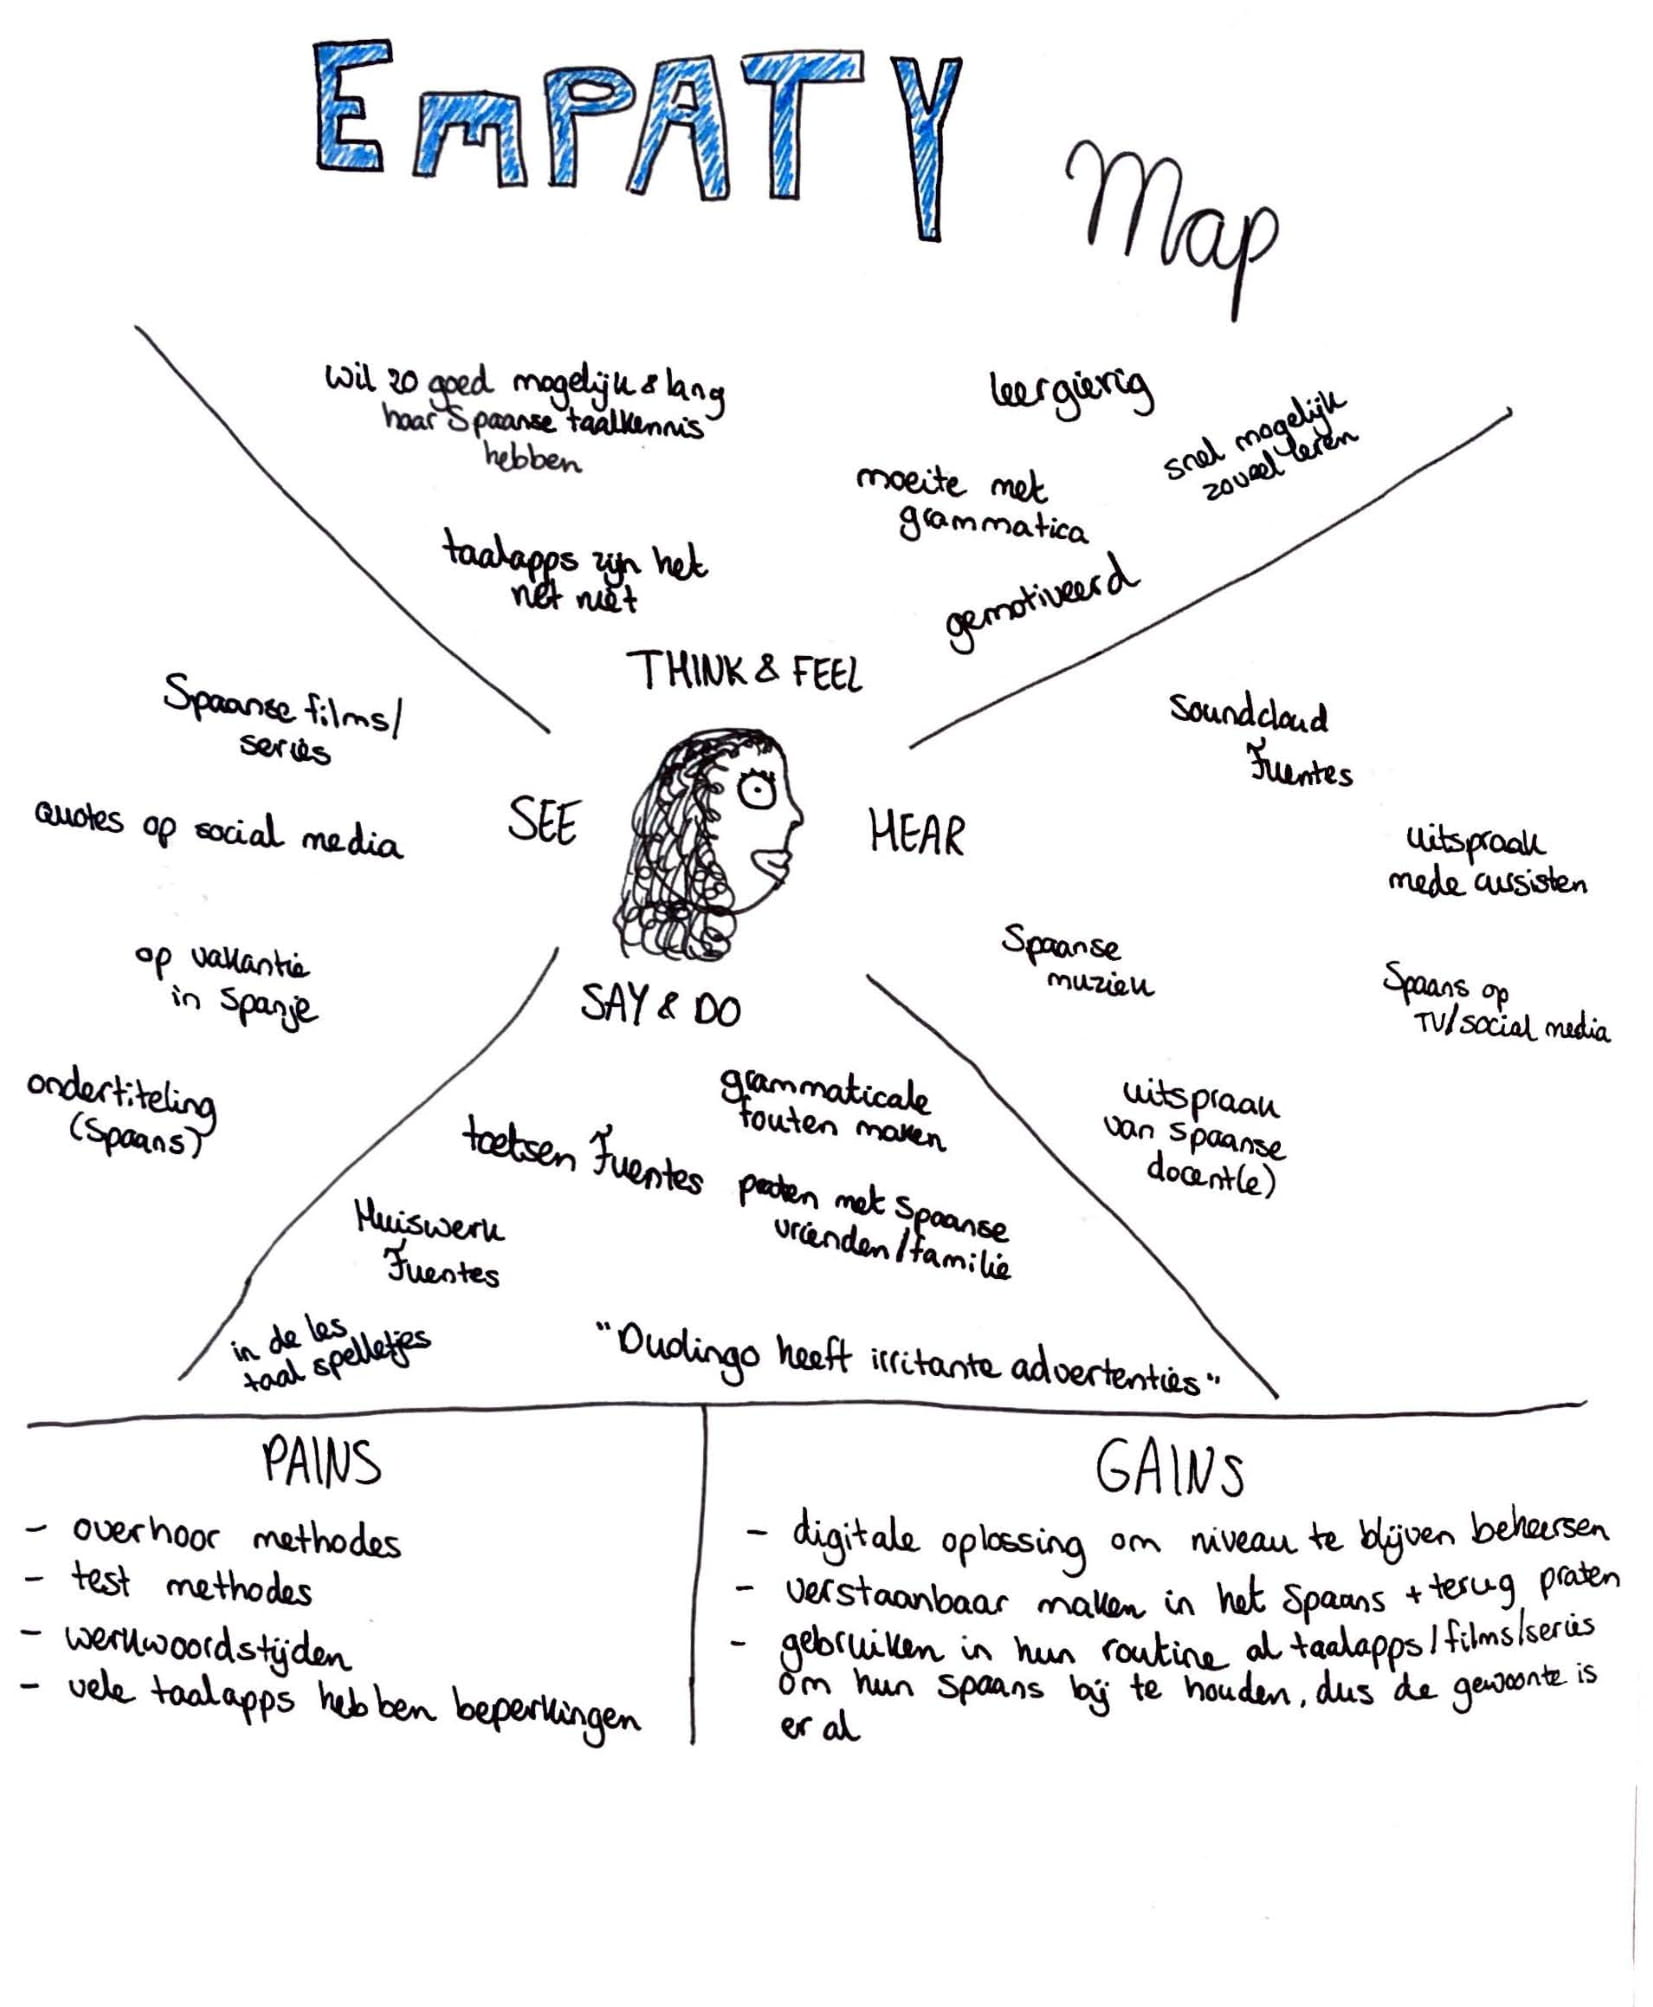 EmPATY Map
wil zo goed mogelijk & lang
haar Spaanse taalkennis
hebben
leergierig
snel mogelijk
zoveel leren
moeite met
grammatica
taalapps zijn het
net niet
gemotiveerd
THINK & FEEL
Spaanse films/
series
SEE
quotes op social media
op vakantie
in Spanje
ondertiteling
(Spaans)
HEAR
Soundcloud
Fuentes
uitspraak
mede cursisten
Spaanse
muziek
Spaans op
TV/social media
uitspraak
van Spaanse
docent(e)
SAY & DO
grammaticale
fouten maken
toetsen Fuentes
praten met Spaanse
vrienden/familie
Huiswerk
Fuentes
in de les
taal spelletjes
"Duolingo heeft irritante advertenties"
PAINS
- overhoor methodes
- test methodes
- werkwoordstijden
- vele taalapps hebben beperkingen
GAINS
- digitale oplossing om niveau te blijven beheersen
- verstaanbaar maken in het Spaans + terug praten
- gebruiken in hun routine al taalapps/films/series
om hun Spaans bij te houden, dus de gewoonte is
er al